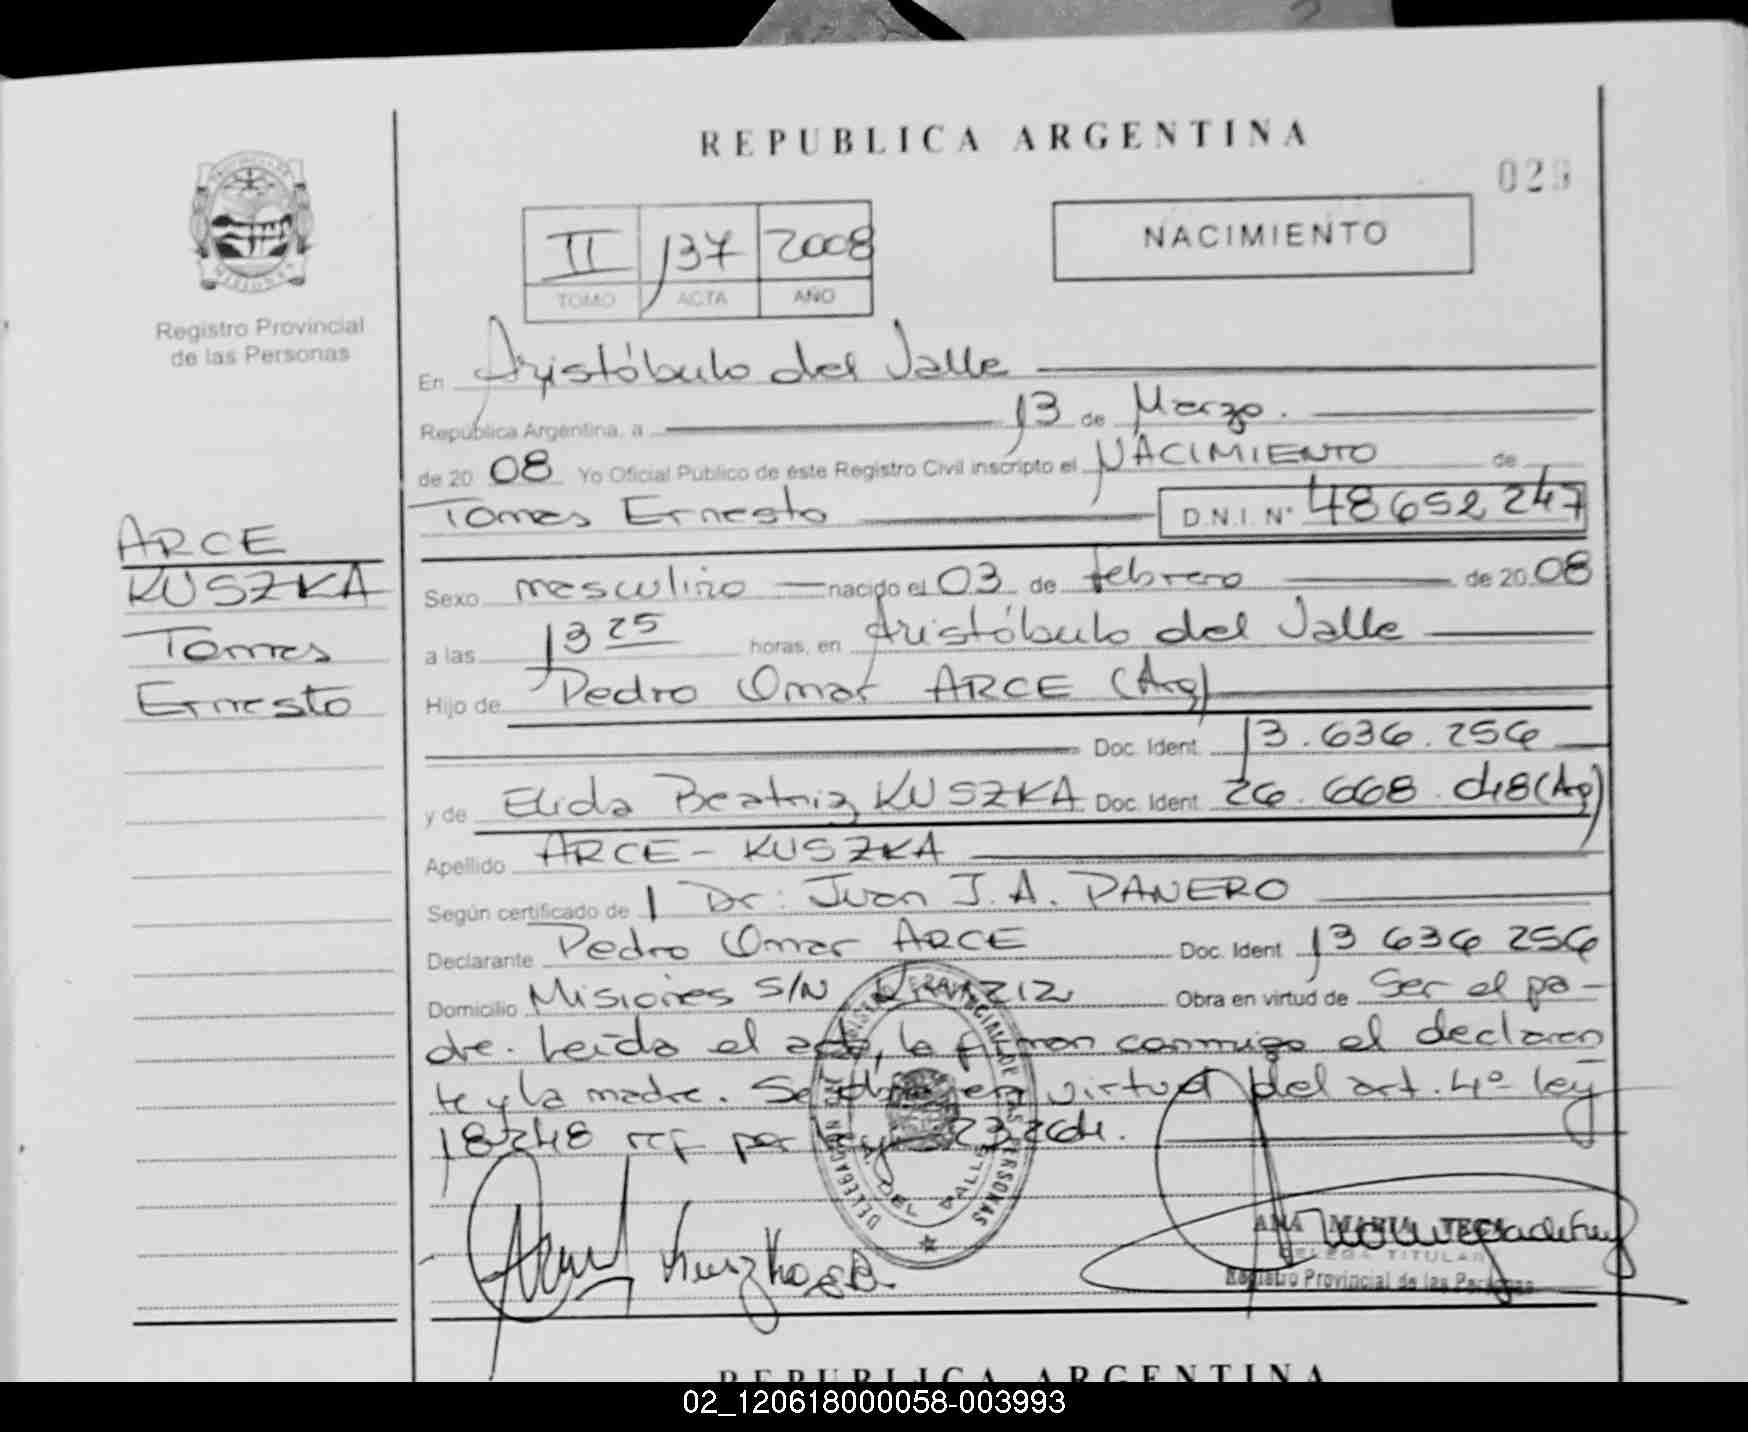 REPUBLICA ARGENTINA
029
II 137 2008
TOMO ACTA AÑO
NACIMIENTO
Registro Provincial
de las Personas
En Aristóbulo del Valle
República Argentina, a 13 de Marzo.
de 20 08 Yo Oficial Público de éste Registro Civil inscripto el NACIMIENTO de
Tomas Ernesto D.N.I. N° 48652247
ARCE
KUSZKA
Tomas
Ernesto
Sexo masculino nacido el 03 de febrero de 20 08
a las 13 25 horas, en Aristóbulo del Valle
Hijo de Pedro Omar ARCE (Arg)
Doc. Ident. 13.636.256
y de Elida Beatriz KUSZKA Doc. Ident. 26.668.048 (Arg)
Apellido ARCE - KUSZKA
Según certificado de 1 Dr: Juan J. A. PANERO
Declarante Pedro Omar ARCE Doc. Ident. 13 636 256
Domicilio Misiones S/N Obra en virtud de Ser el pa-
dre. Leída el acta, la firman conmigo el declaran
te y la madre. Se en virtud del art. 4º ley
18248 por ley 23264.
REGISTRO PROVINCIAL DE LAS PERSONAS
DEL VALLE
Kuszka E.B.
ANA MARIA
DELEGADA TITULAR
Registro Provincial de las Personas
REPUBLICA ARGENTINA
02_120618000058-003993